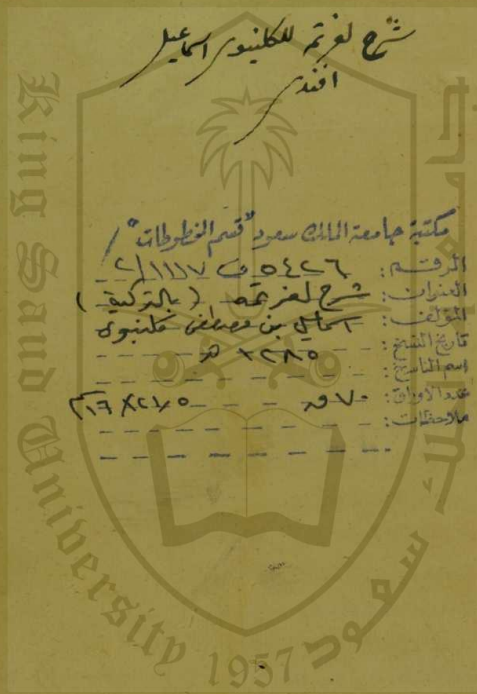 شرح لغرتمه للكلنبوى اسماعيل
افندى
مكتبة جامعة الملك سعود "قسم المخطوطات"
الرقم: ٥٤٢٦ ف ٢/١١٨٧
العنوان: شرح لغرتمه (بالتركية)
المؤلف: اسماعيل بن مصطفى كلنبوى
تاريخ النسخ: ١٢٨٥ هـ
اسم الناسخ:
عدد الأوراق: ٧٠ ق
ملاحظات:
King Saud University
1957